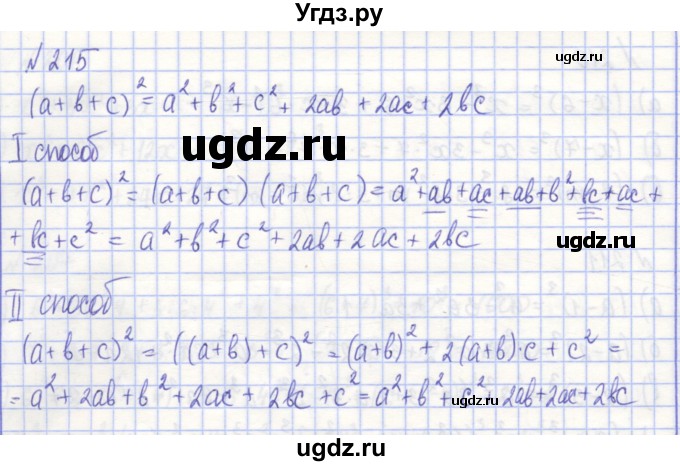 Угдз.ру
№ 215
ugdz.ru
ugdz.ru
(a+b+c)² = a²+b²+c² + 2ab + 2ac + 2bc
ugdz.ru
I способ
(a+b+c)² = (a+b+c) (a+b+c) = a²+ab+ac+ab+b²+bc+ac+
+bc+c² = a²+b²+c²+2ab+2ac+2bc
ugdz.ru
ugdz.ru
II способ
ugdz.ru
(a+b+c)² = ((a+b)+c)² = (a+b)² + 2(a+b)·c + c² =
= a²+2ab+b²+2ac+2bc+c² = a²+b²+c²+2ab+2ac+2bc
ugdz.ru
ugdz.ru
ugdz.ru